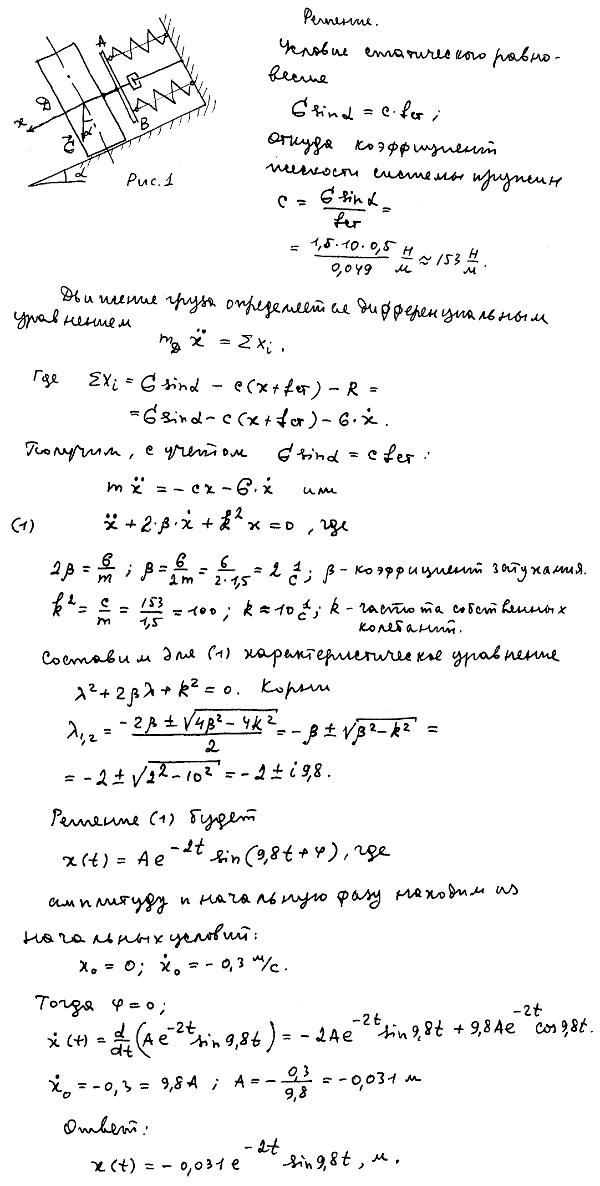 Решение.
Условие статического равно-
весия
G sinα = c·fст ;
откуда коэффициент
жесткости системы пружин
c = G sinα / fст =
= 1,5·10·0,5 / 0,049 Н/м ≈ 153 Н/м.
A
D
x
G
α
B
α
Рис.1
Движение груза определяется дифференциальным
уравнением
m_D ẍ = Σxi .
Где Σxi = G sinα − c(x+fст) − R =
= G sinα − c(x+fст) − б·ẋ.
Получим, с учетом G sinα = c fст :
m ẍ = −cx − б·ẋ или
(1) ẍ + 2·β·ẋ + k²x = 0 , где
2β = б/m ; β = б/2m = 6/(2·1,5) = 2 1/с ; β − коэффициент затухания.
k² = c/m = 153/1,5 = 100 ; k ≈ 10 1/с ; k − частота собственных
колебаний.
Составим для (1) характеристическое уравнение
λ² + 2βλ + k² = 0. Корни
λ1,2 = (−2β ± √(4β² − 4k²)) / 2 = −β ± √(β² − k²) =
= −2 ± √(2² − 10²) = −2 ± i 9,8.
Решение (1) будет
x(t) = A e^(−2t) sin(9,8t + φ), где
амплитуду и начальную фазу находим из
начальных условий:
x₀ = 0; ẋ₀ = −0,3 м/с.
Тогда φ = 0;
ẋ(t) = d/dt (A e^(−2t) sin 9,8t) = −2A e^(−2t) sin 9,8t + 9,8A e^(−2t) cos 9,8t.
ẋ₀ = −0,3 = 9,8A ; A = −0,3/9,8 = −0,031 м
Ответ:
x(t) = −0,031 e^(−2t) sin 9,8t , м.